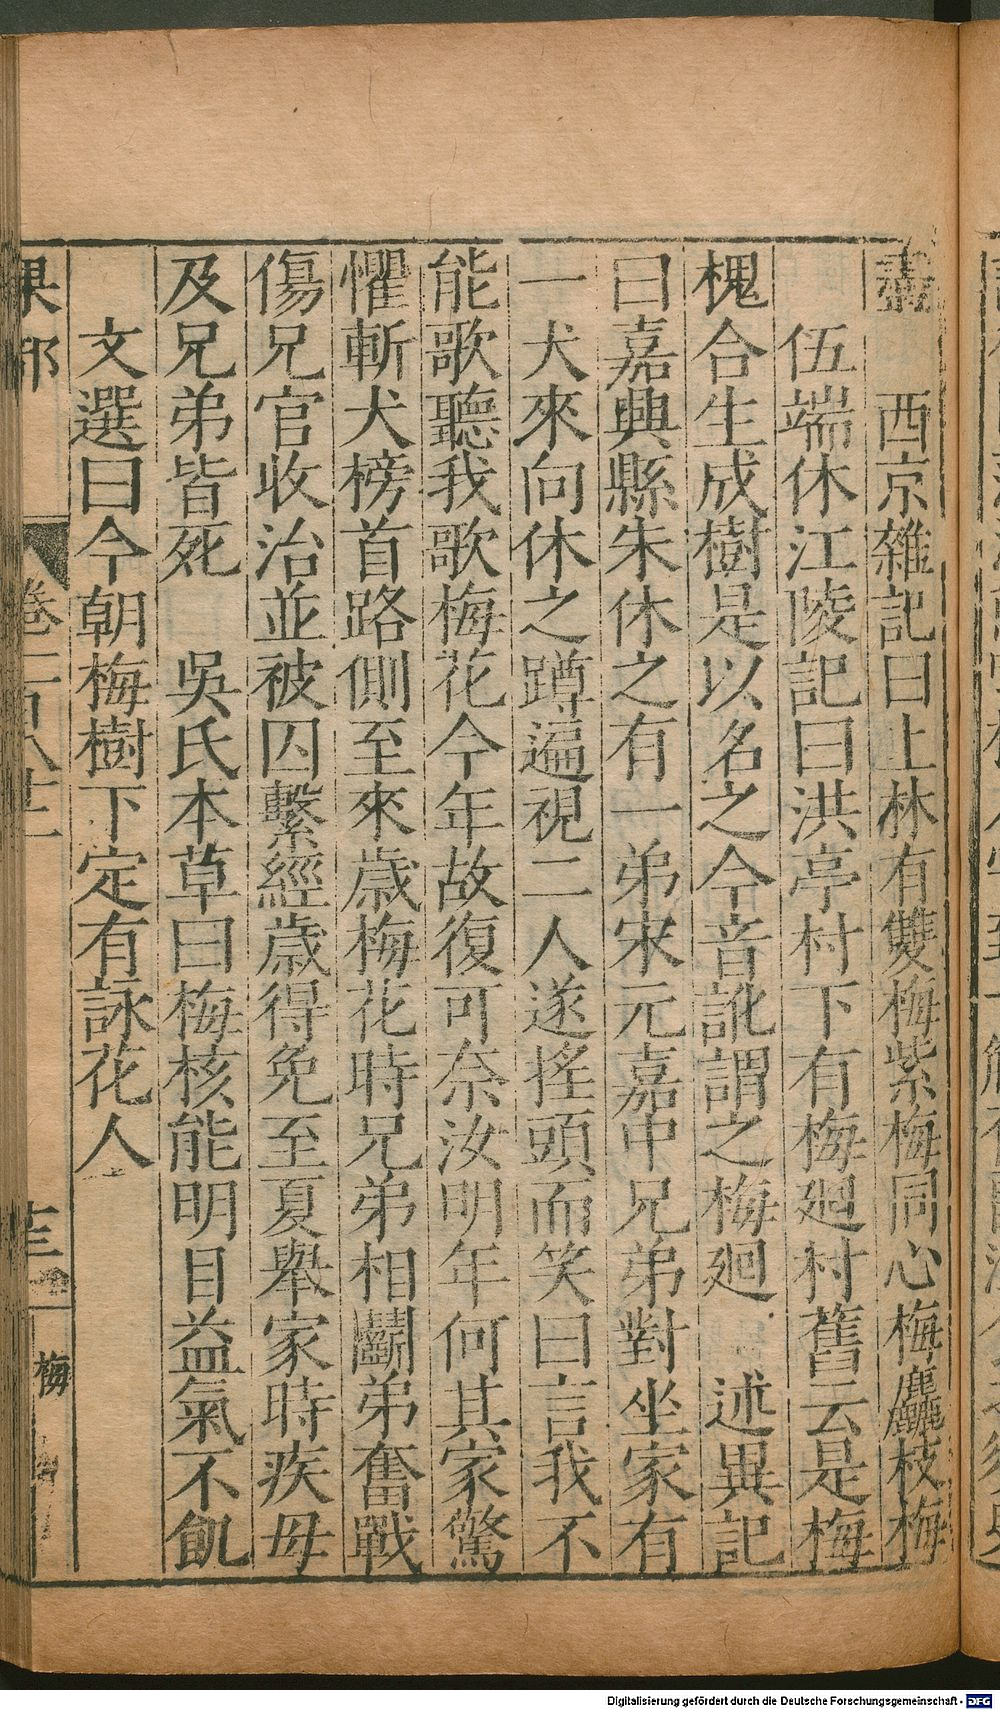 蠹　西京雜記曰上林有雙梅紫梅同心梅麤枝梅
伍端休江陵記曰洪亭村下有梅廻村舊云是梅
槐合生成樹是以名之今音訛謂之梅廻　述異記
曰嘉興縣朱休之有一弟宋元嘉中兄弟對坐家有
一犬來向休之蹲遍視二人遂搖頭而笑曰言我不
能歌聽我歌梅花今年故復可奈汝明年何其家驚
懼斬犬榜首路側至來歲梅花時兄弟相鬭弟奮戰
傷兄官收治並被囚繫經歲得免至夏舉家時疾母
及兄弟皆死　吳氏本草曰梅核能明目益氣不飢
文選曰今朝梅樹下定有詠花人
果部
卷
梅
Digitalisierung gefördert durch die Deutsche Forschungsgemeinschaft - DFG